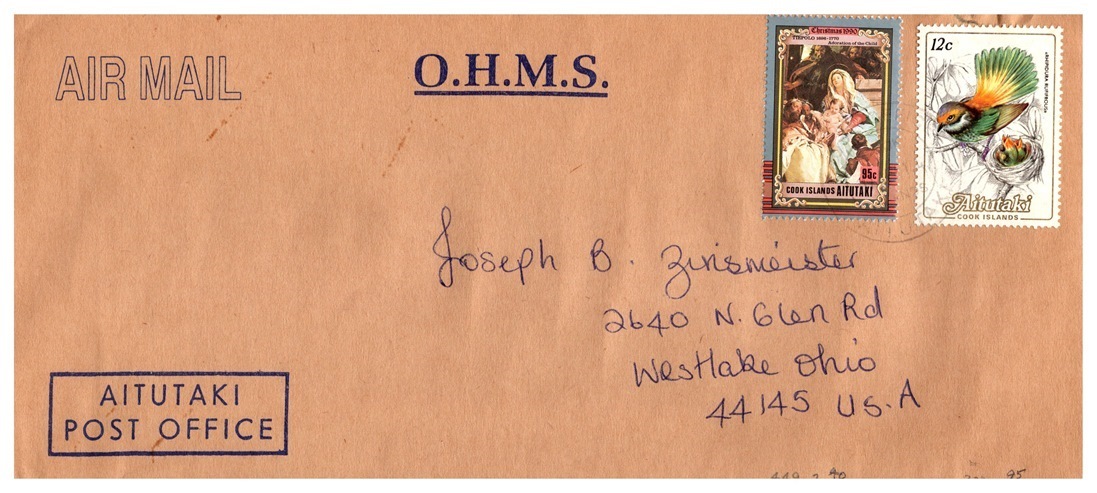 AIR MAIL
O.H.M.S.
Christmas 1990
TIEPOLO 1696-1770
Adoration of the Child
95c
COOK ISLANDS AITUTAKI
12c
RHIPIDURA RUFIFRONS
Aitutaki
COOK ISLANDS
Joseph B. Zinsmeister
2640 N. Glen Rd
Westlake Ohio
44145 U.S.A
AITUTAKI
POST OFFICE
95